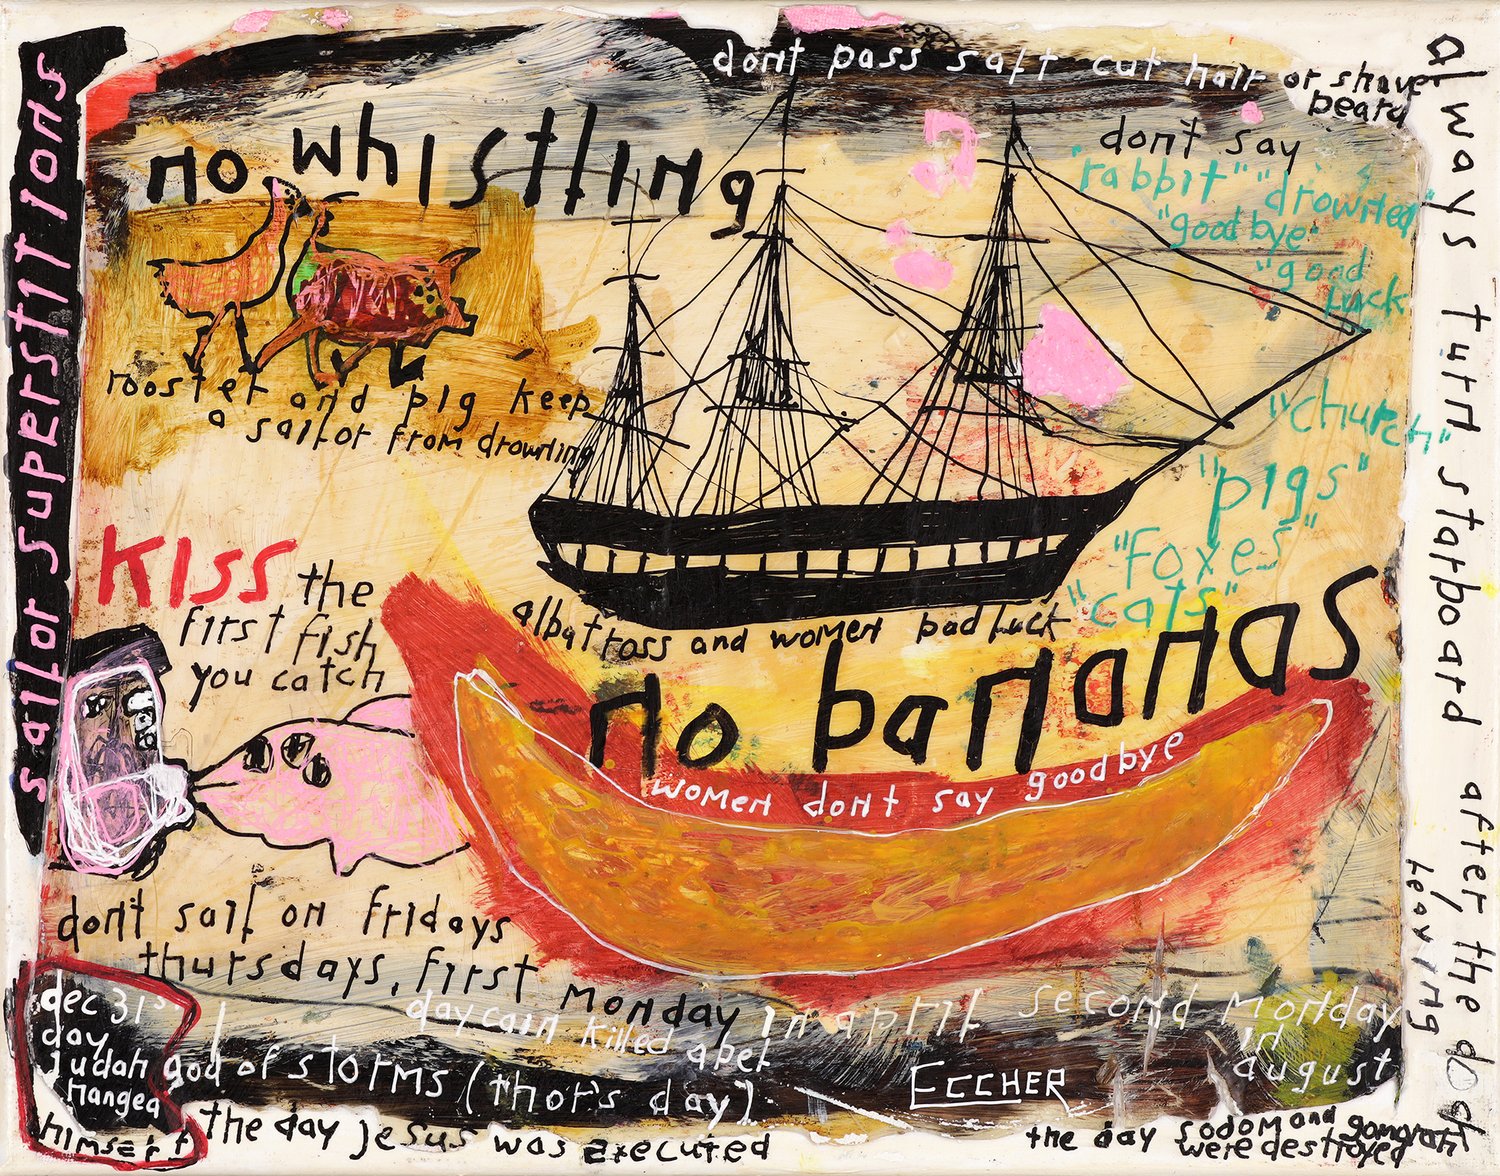 sailor superstitions
dont pass salt cut hair or shave
beard
always turn starboard after
leaving
the dock
no whistling
don't say
"rabbit" "drowned"
"goodbye"
"good
luck"
"church"
"pigs"
"foxes"
"cats"
rooster and pig keep
a sailor from drowning
KISS the
first fish
you catch
albatross and women bad luck
no bananas
women dont say goodbye
don't sail on fridays
thursdays, first monday in april second monday
in
august
day cain killed abel
dec 31st
day
judah
hanged
himself
god of storms (thor's day)
ECCHER
the day jesus was executed
the day sodom and gomorrah
were destroyed